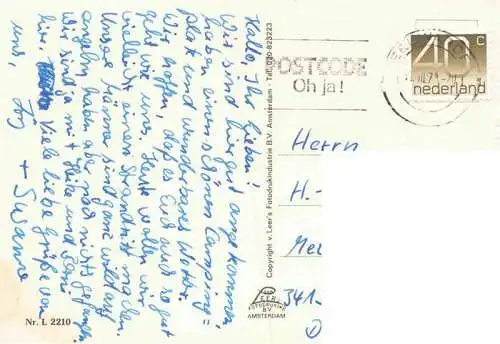 Hallo, Ihr Lieben!
Wir sind hier gut angekommen,
haben einen schönen Camping=
platz und wunderbares Wetter.
Wir hoffen, daß es Euch auch so gut
geht wie uns. Heute wollen wir
vielleicht einen Strandritt machen.
Unsere Männer sind ganz wild auf
angeln, haben aber noch nichts gefangen.
Wir sind ja mit Heike und
hier. Viele liebe Grüße von
uns + Susanne
Nr. L 2210
Copyright v. Leer's Fotodrukindustrie B.V. Amsterdam - Tel. 020-823223
VAN LEER
FOTODRUKIND
BV
AMSTERDAM
POSTCODE
Oh ja!
40 c
nederland
Herrn
H.-
Mel
341-
D